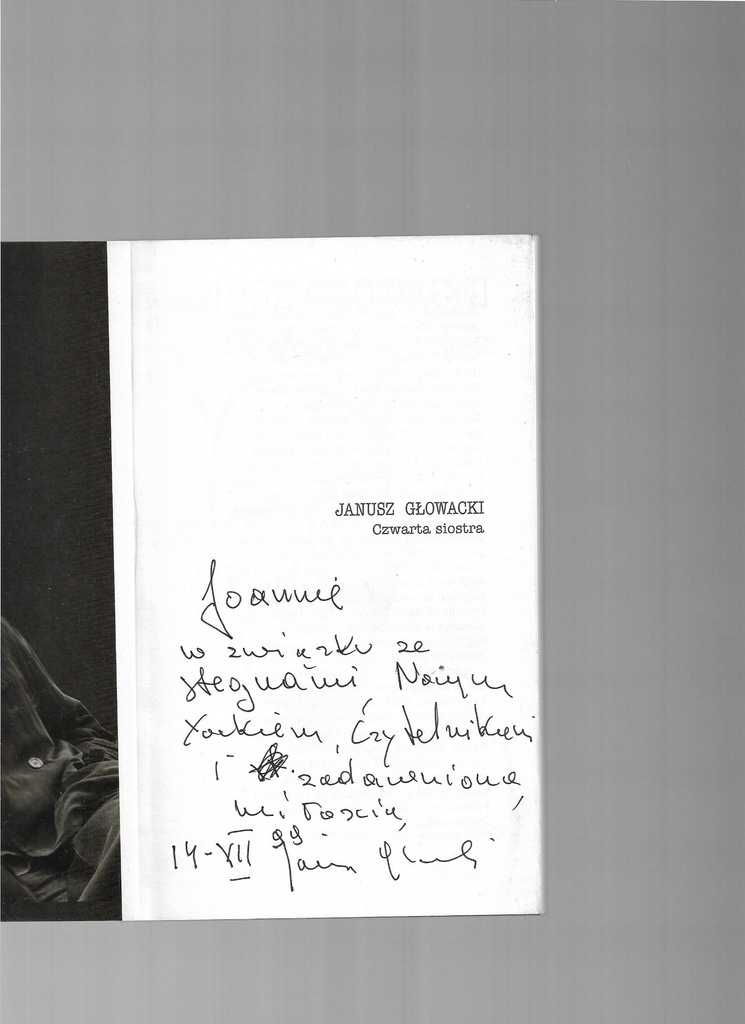 JANUSZ GŁOWACKI
Czwarta siostra
Joannie
w związku ze
Nowym
Yorkiem, Czytelnikiem
i zadawnioną
miłością,
14-XII 99 Janusz Głowacki